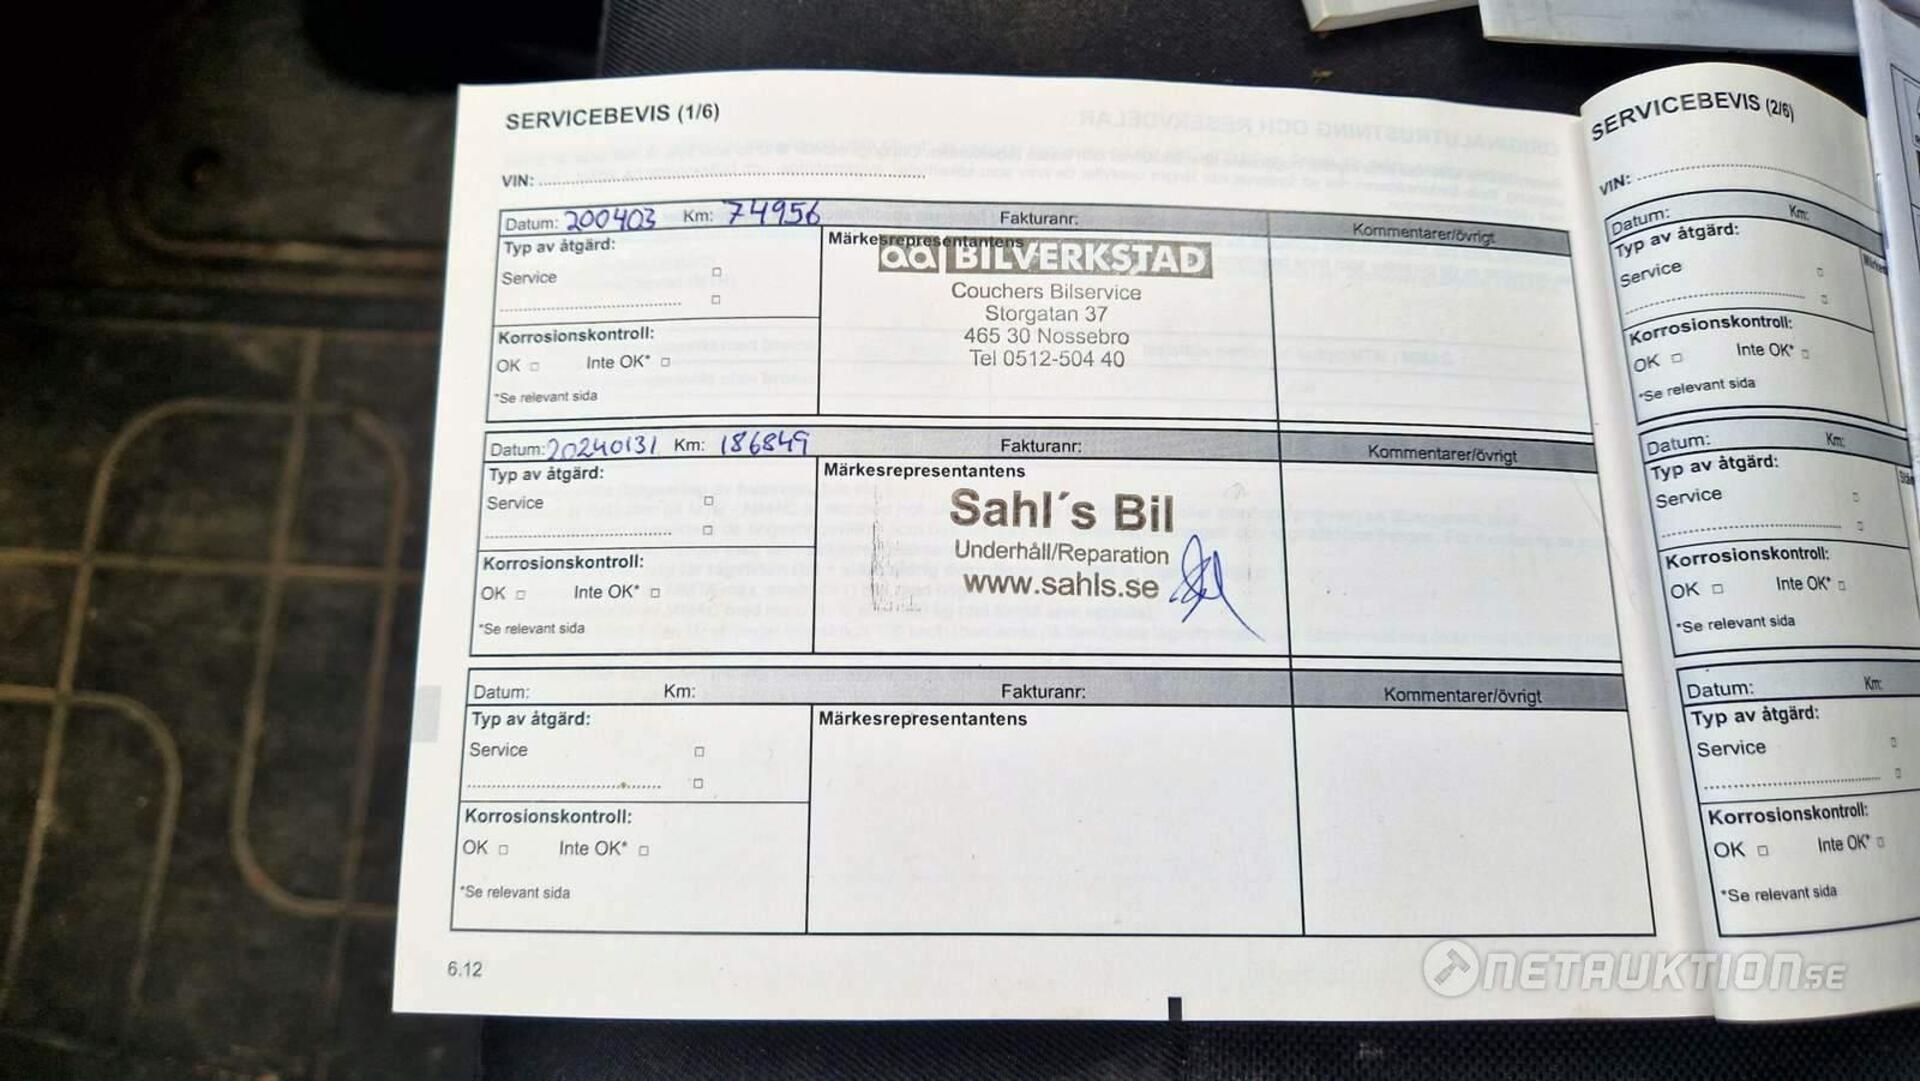 SERVICEBEVIS (1/6)
VIN:
Datum: 200403 Km: 74956 Fakturanr: Kommentarer/övrigt
Typ av åtgärd: Märkesrepresentantens
Service
ad BILVERKSTAD
Couchers Bilservice
Storgatan 37
465 30 Nossebro
Tel 0512-504 40
Korrosionskontroll:
OK Inte OK*
*Se relevant sida
Datum: 20240131 Km: 186849 Fakturanr: Kommentarer/övrigt
Typ av åtgärd: Märkesrepresentantens
Service
Sahl´s Bil
Underhåll/Reparation
www.sahls.se
Korrosionskontroll:
OK Inte OK*
*Se relevant sida
Datum: Km: Fakturanr: Kommentarer/övrigt
Typ av åtgärd: Märkesrepresentantens
Service
Korrosionskontroll:
OK Inte OK*
*Se relevant sida
6.12
SERVICEBEVIS (2/6)
VIN:
Datum: Km:
Typ av åtgärd:
Service
Korrosionskontroll:
OK Inte OK*
*Se relevant sida
Datum: Km:
Typ av åtgärd:
Service
Korrosionskontroll:
OK Inte OK*
*Se relevant sida
Datum: Km:
Typ av åtgärd:
Service
Korrosionskontroll:
OK Inte OK*
*Se relevant sida
NETAUKTION.SE